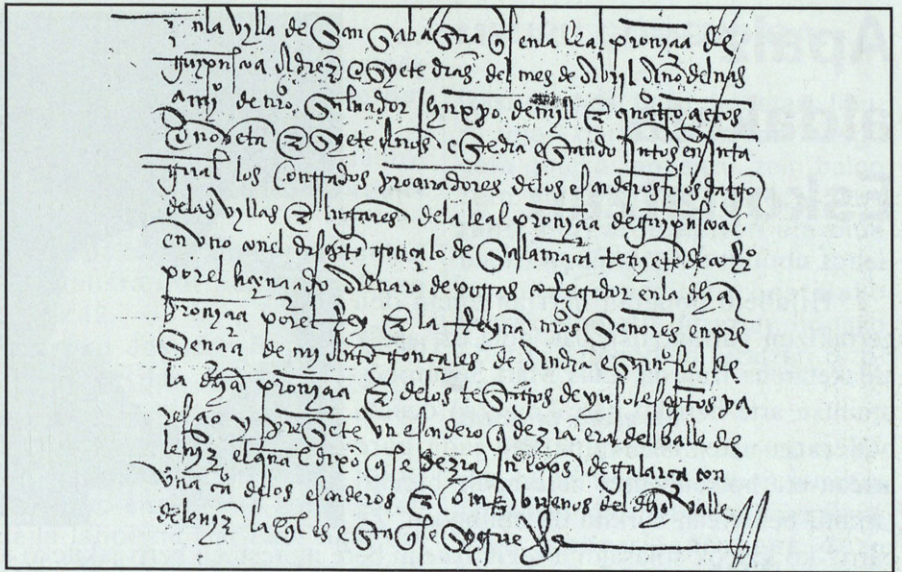 en la vylla de San Sabastian q es en la leal proviçia de
guypuscoa a diez e syete dias del mes de abril año del nas
çimi de nro Saluador Ihuxpo de mill e quatroçientos
e nobenta e syete años este dia estando juntos en junta
general los honrrados procuradores de los escuderos fijos dalgo
de las vyllas e lugares de la leal proviçia de guypuscoa
en vno con el discreto gonçalo de Salamaca teniete de
por el honrrado aluaro de porras corregidor en la dha
proviçia por el Rey e la Reyna nros Señores en pre
Sençia de mi anto gonçales de andia esno fiel de
la dha proviçia e de los testigos de yuso escriptos pa
resçio y presete vn escudero q dezia era del balle de
leniz el qual e dixo q se dezia jn lopes de galarça con
vna carta de los escuderos e omes buenos del dho valle
de leniz la ql es esta q se Sygue